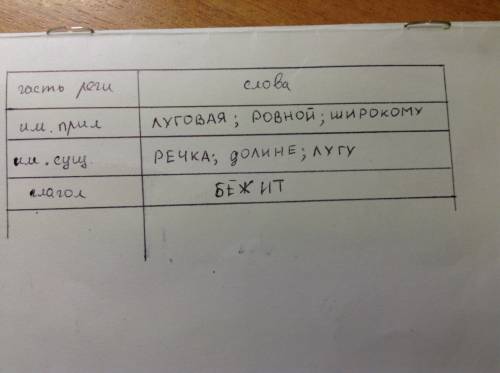 часть речи слова
им. прил ЛУГОВАЯ; РОВНОЙ; ШИРОКОМУ
им. сущ. РЕЧКА; ДОЛИНЕ; ЛУГУ
глагол БЕЖИТ